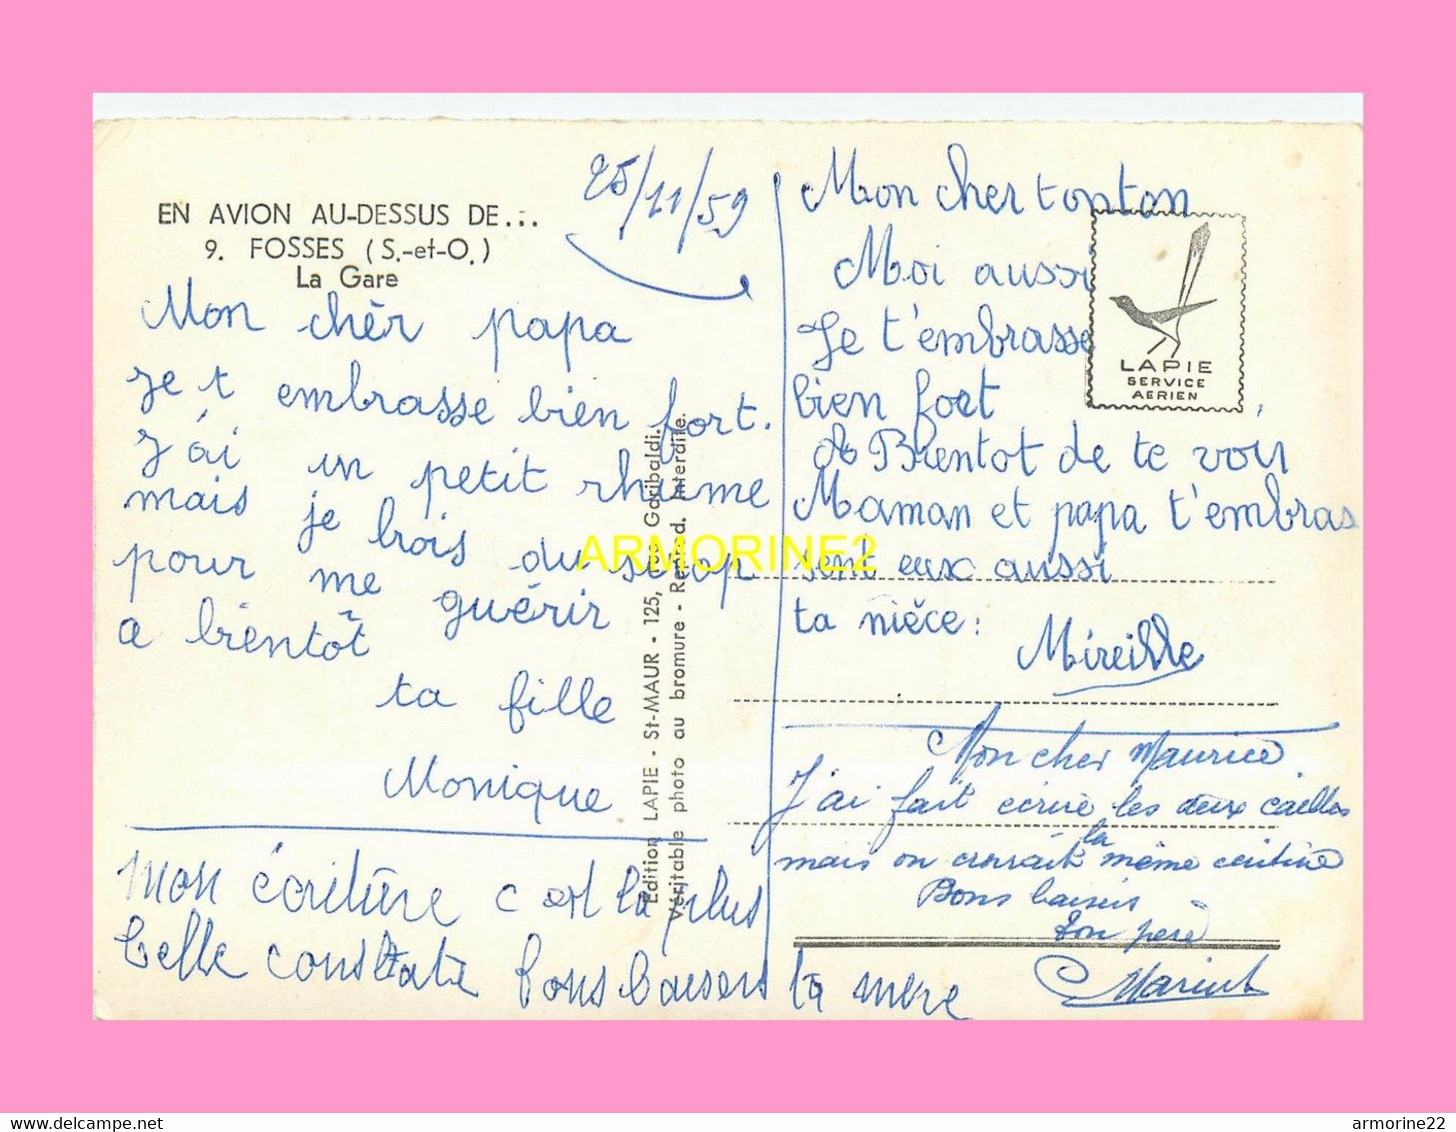 EN AVION AU-DESSUS DE...
9. FOSSES (S.-et-O.)
La Gare
25/11/59
Mon chèr papa
je t embrasse bien fort.
j'ái un petit rhume
mais je bois du sirop
pour me guérir
a bientôt
ta fille
Monique
mon écriture c est la plus
belle constate bons baisers ta mère
Edition LAPIE - St-MAUR - 125, Garibaldi.
Véritable photo au bromure - Rep d. Interdite.
Mon cher tonton
Moi aussi
Je t'embrasse
bien fort
A Bientot de te voir
Maman et papa t'embras
sent eux aussi
ta nièce :
Mireille
LAPIE
SERVICE
AERIEN
Mon cher Maurice
J'ai fait écrire les deux cailles
mais on croirait la même écriture
Bons baisers
Ton père
ARMORINE2
delcampe.net
armorine22